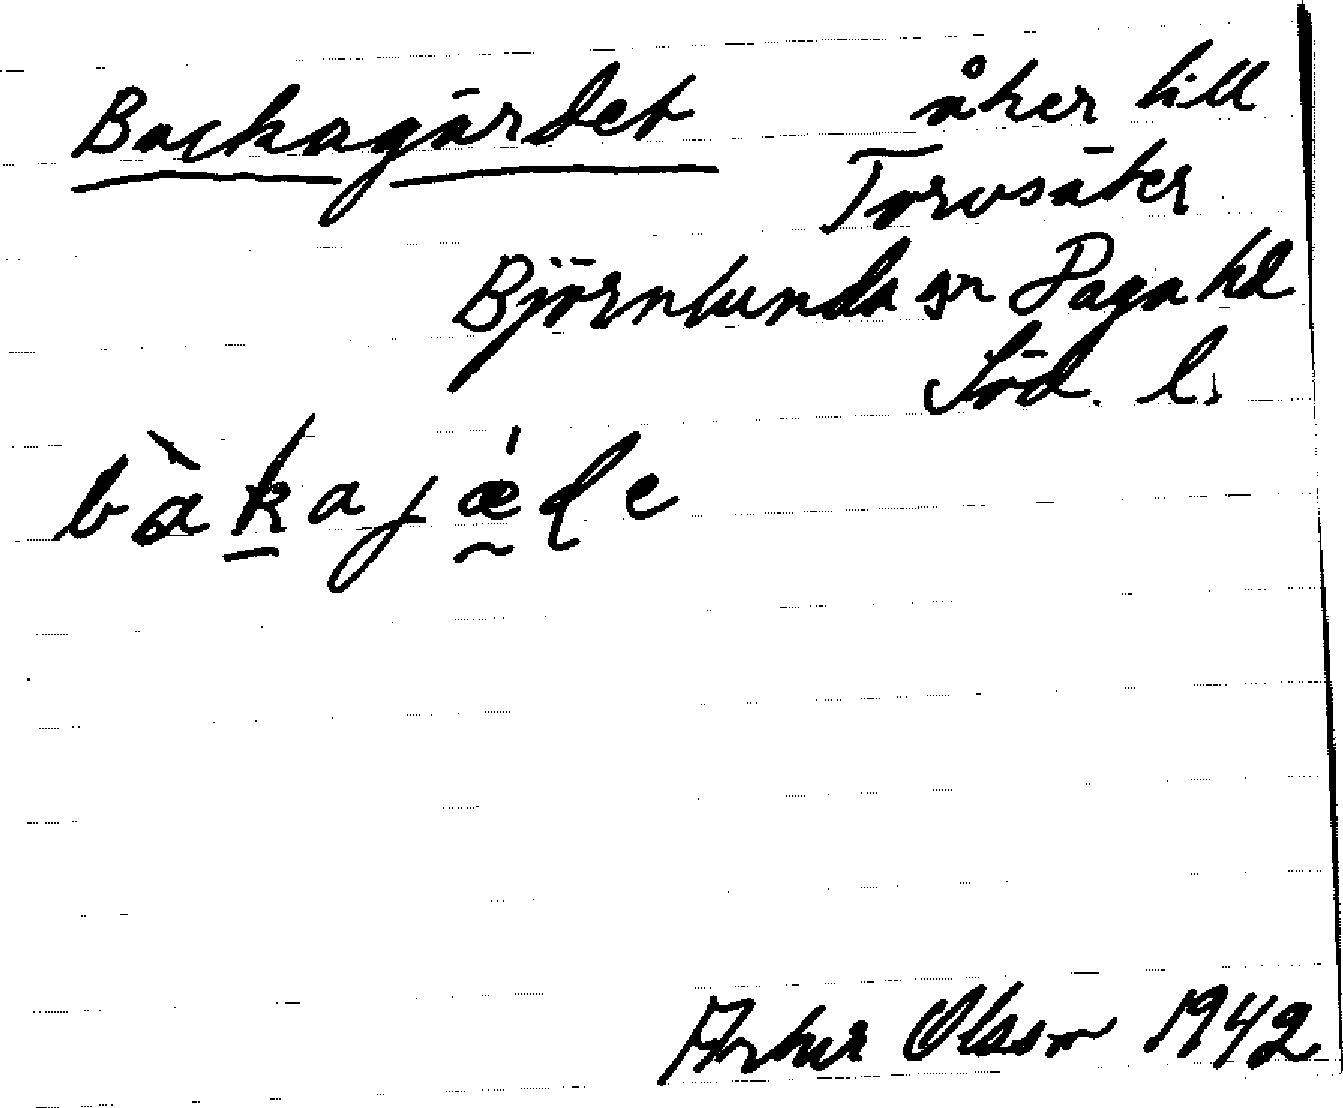 Backagärdet åker till
Torvsäter
Björnlunda sn Daga hd
Söd. l.
bàkajæ̀de
Arthur Olsson 1942